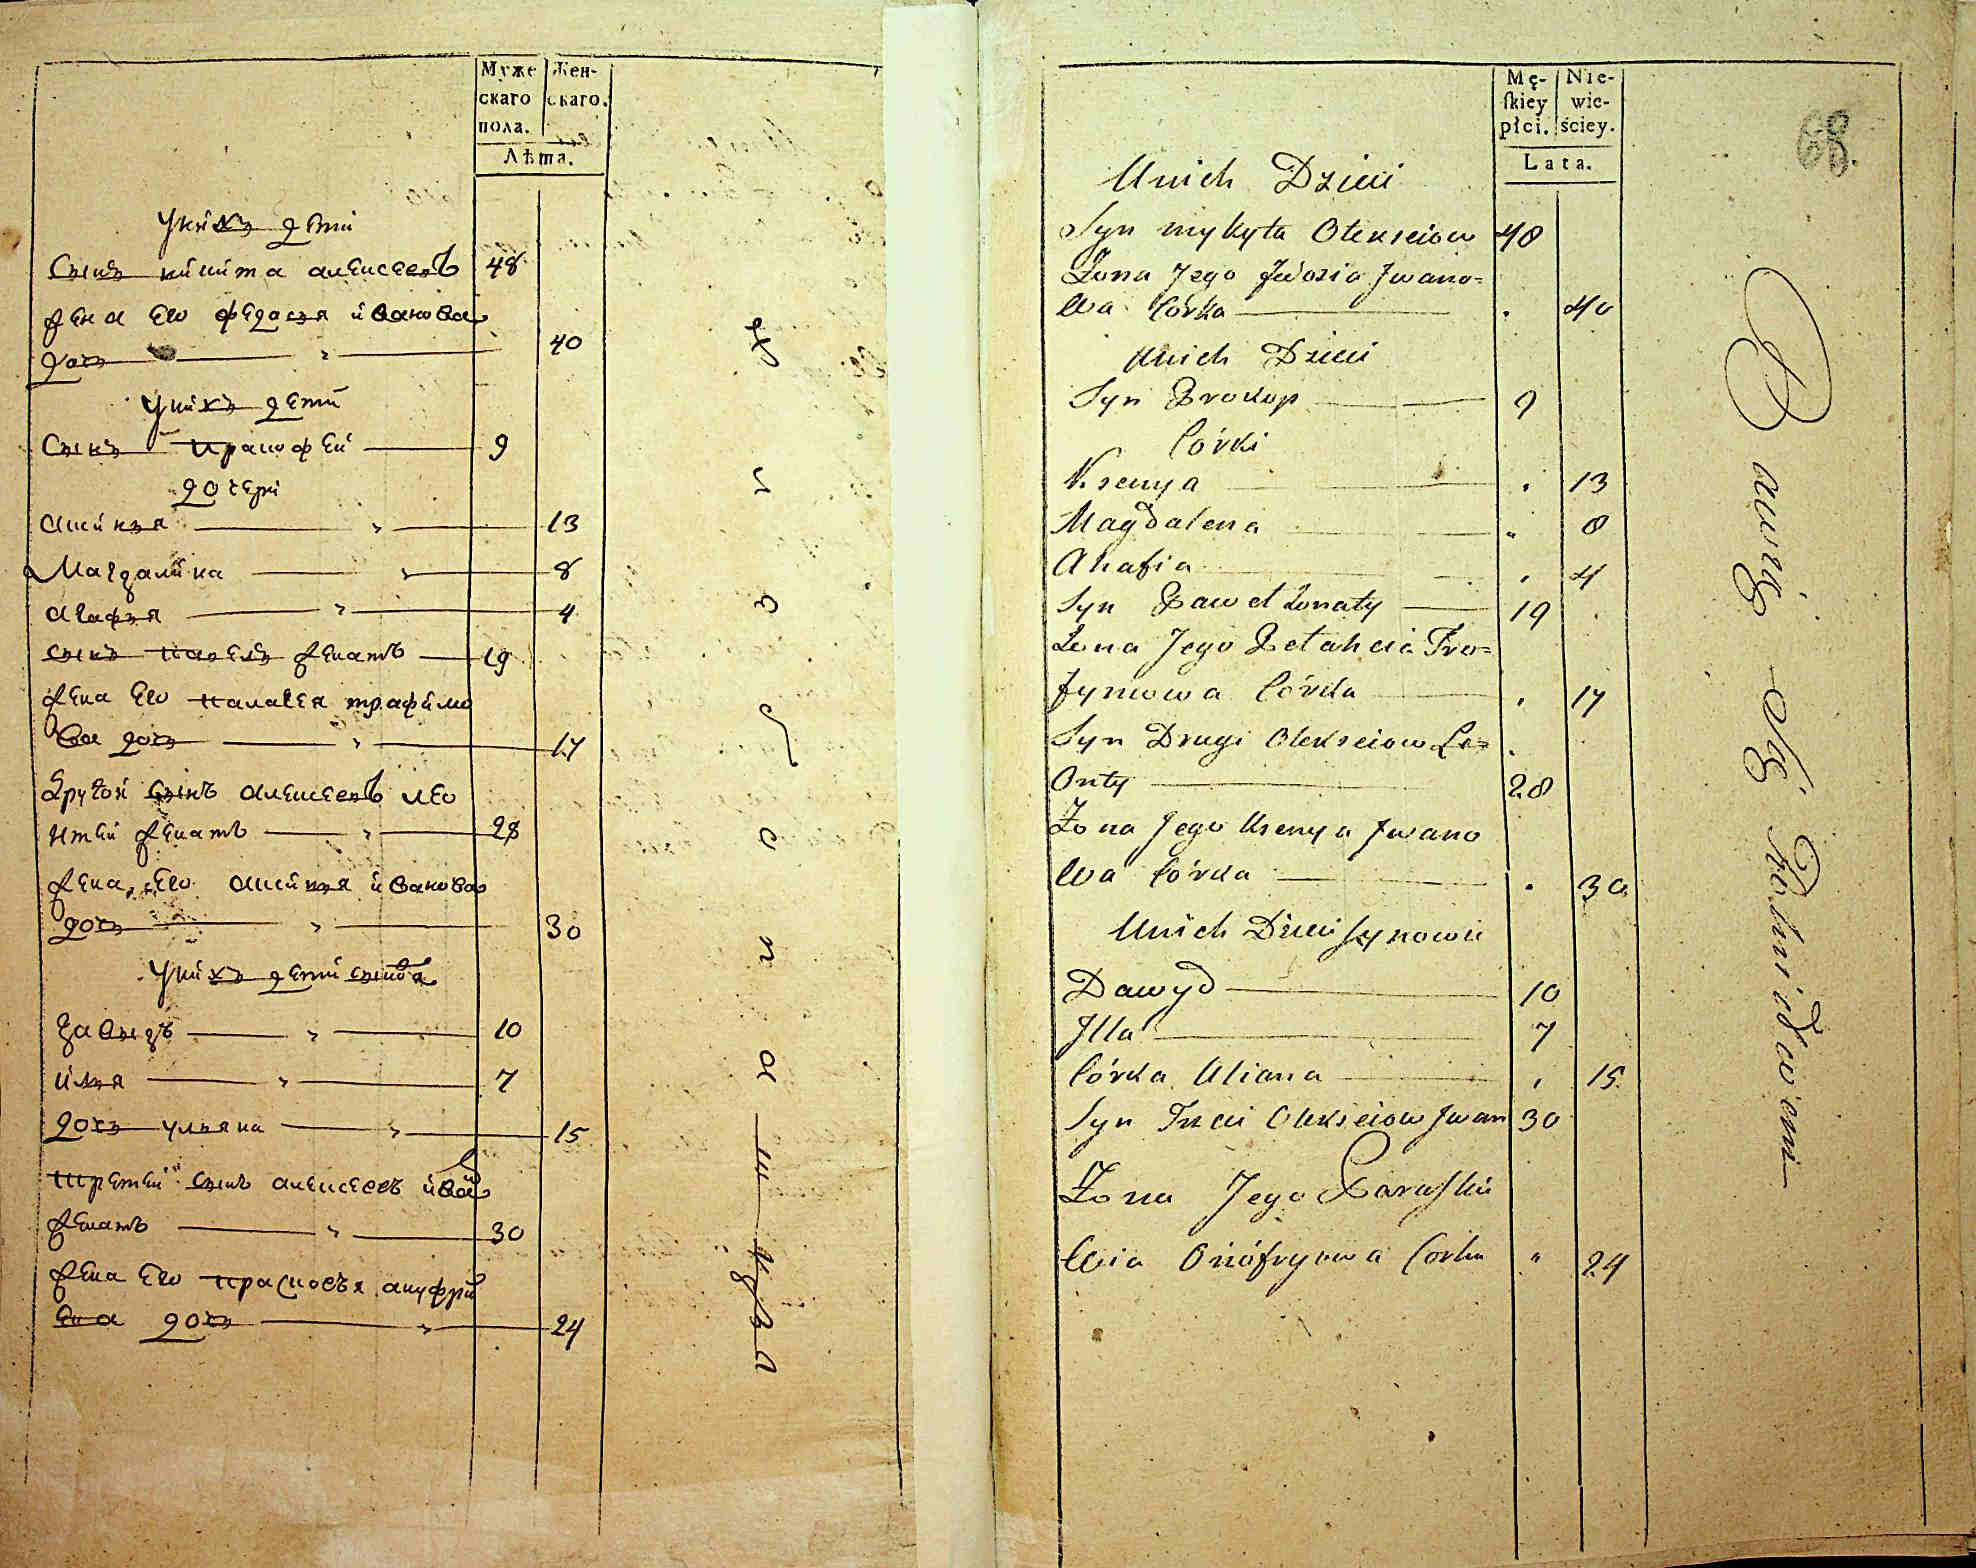 Муже
скаго
пола.
Жен-
скаго.
Лѣта.
У нихъ дети
Сынъ никита алексеевъ 48
жена Его федосья иванова
дочь 40
У нихъ дети
Сынъ Прокофей 9
дочери
Аксинья 13
Магдалина 8
Агафья 4
Сынъ павелъ женатъ 19
жена Его палагея трафимо
ва дочь 17
другой сынъ алексеевъ лео
нтей женатъ 28
жена Его Аксинья иванова
дочь 30
У нихъ дети сынова
давыдъ 10
илья 7
дочь ульяна 15
третей сынъ алексеевъ иванъ
женатъ 30
жена Его прасковья ануфри
ева дочь 24
Mę-
ſkiey
płci.
Nie-
wie-
ściey.
Lata.
68.
Unich Dzieci
Syn mykyta Olexeiow 48
Żona Jego Fwdosia Jwano=
wa Córka 40
Unich Dzieci
Syn Prokop 9
Córki
Ksenya 13
Magdalena 8
Ahafia 4
Syn Paweł Żonaty 19
Żona Jego Petaheia Tro=
fymowa Córka 17
Syn Drugi Olekseiow Le=
Onty 28
Żona Jego Ksenya Jwano
wa Córka 30
Unich Dzieci synowie
Dawyd 10
Jlla 7
Córka Uliana 15
Syn Trzeci Olekseiow Jwan 30
Żona Jego Paraſkie
Wia Onofryowa Corka 24